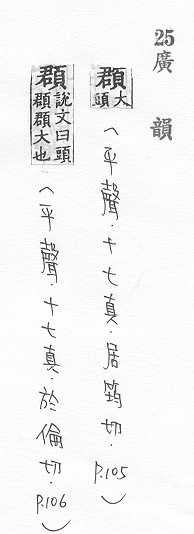 25 廣韻
頵 大頭（平聲．十七真．居筠切．P.105）
頵 說文曰頭頵頵大也（平聲．十七真．於倫切．P.106）